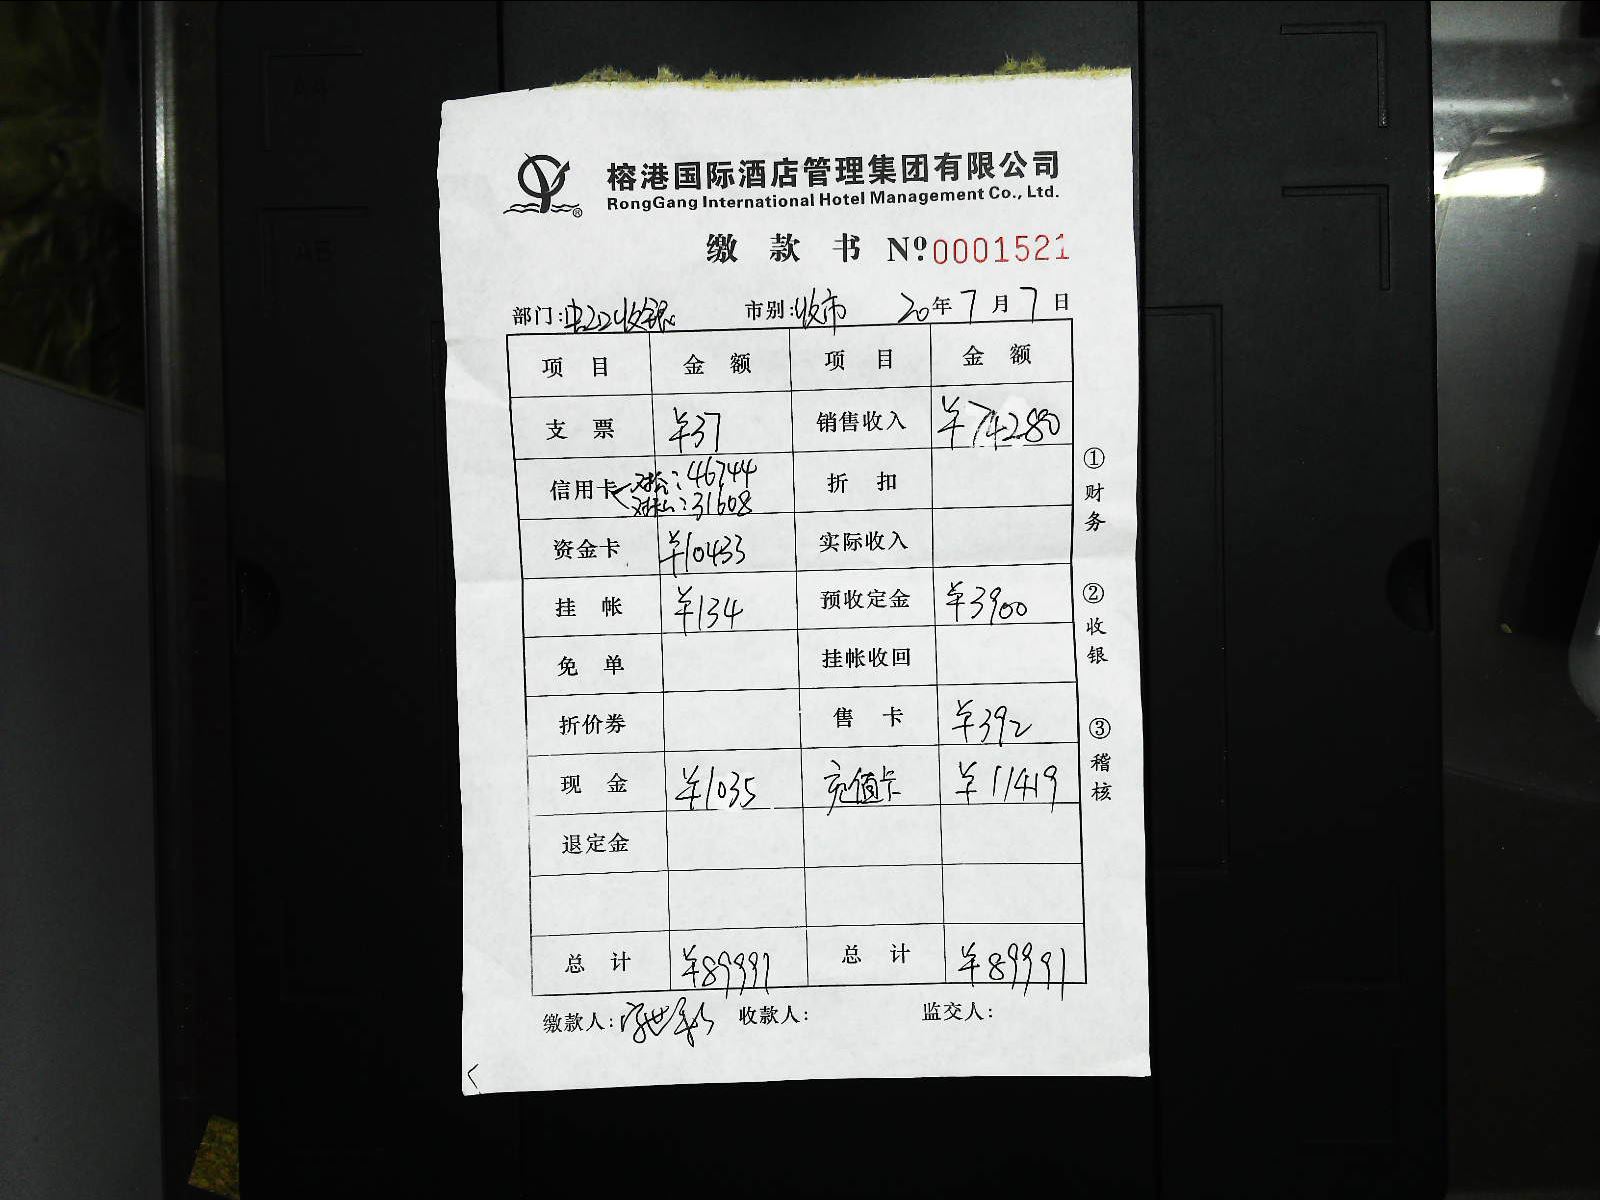 榕港国际酒店管理集团有限公司
RongGang International Hotel Management Co., Ltd.
缴 款 书 Nº 0001521
部门: 收银 市别: 收市 20年7月7日
项 目 金 额 项 目 金 额
支 票 ¥37 销售收入 ¥74280
信用卡 对公:46744 折 扣
31608
资金卡 ¥10433 实际收入
挂 帐 ¥134 预收定金 ¥3900
免 单 挂帐收回
折价券 售 卡 ¥392
现 金 ¥1035 充值卡 ¥11419
退定金
总 计 ¥89991 总 计 ¥89991
缴款人: 收款人: 监交人:
①财务
②收银
③稽核